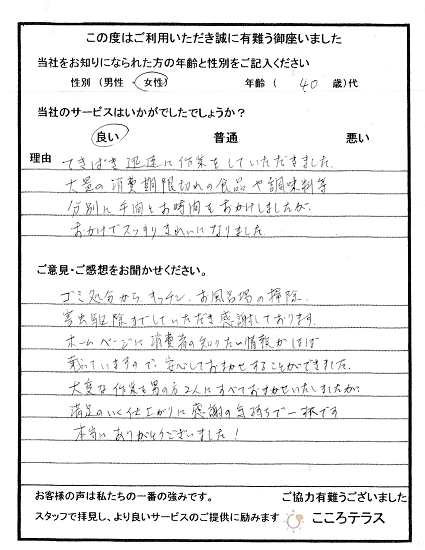 この度はご利用いただき誠に有難う御座いました
当社をお知りになられた方の年齢と性別をご記入ください
性別 (男性 女性) 年齢 ( 40 歳)代
当社のサービスはいかがでしたでしょうか?
良い 普通 悪い
理由 てきぱき迅速に作業をしていただきました。
大量の消費期限切れの食品や調味料等
分別に手間とお時間をおかけしましたが、
おかげでスッキリきれいになりました
ご意見・ご感想をお聞かせください。
ゴミ処分からキッチン、お風呂場の掃除、
害虫駆除までしていただき感謝しております。
ホームページに消費者の知りたい情報がほぼ
載っていますので、安心しておまかせすることができました。
大変な作業を男の方2人にすべておまかせいたしましたが、
満足のいく仕上がりに感謝の気持ちで一杯です
本当にありがとうございました!
お客様の声は私たちの一番の強みです。 ご協力有難うございました
スタッフで拝見し、より良いサービスのご提供に励みます こころテラス